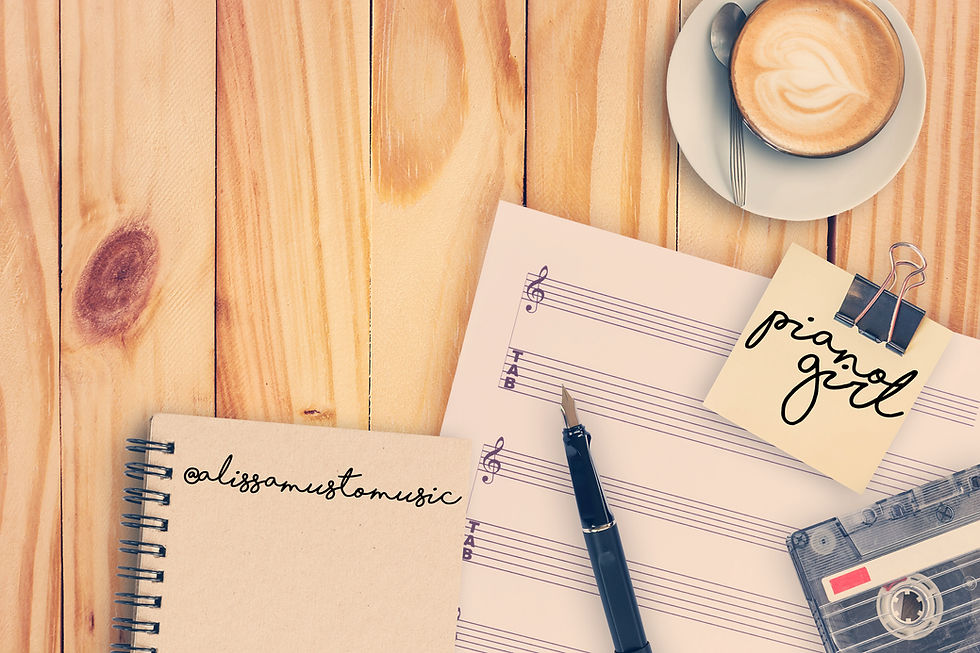 piano
girl
TAB
@alissamustomusic
TAB